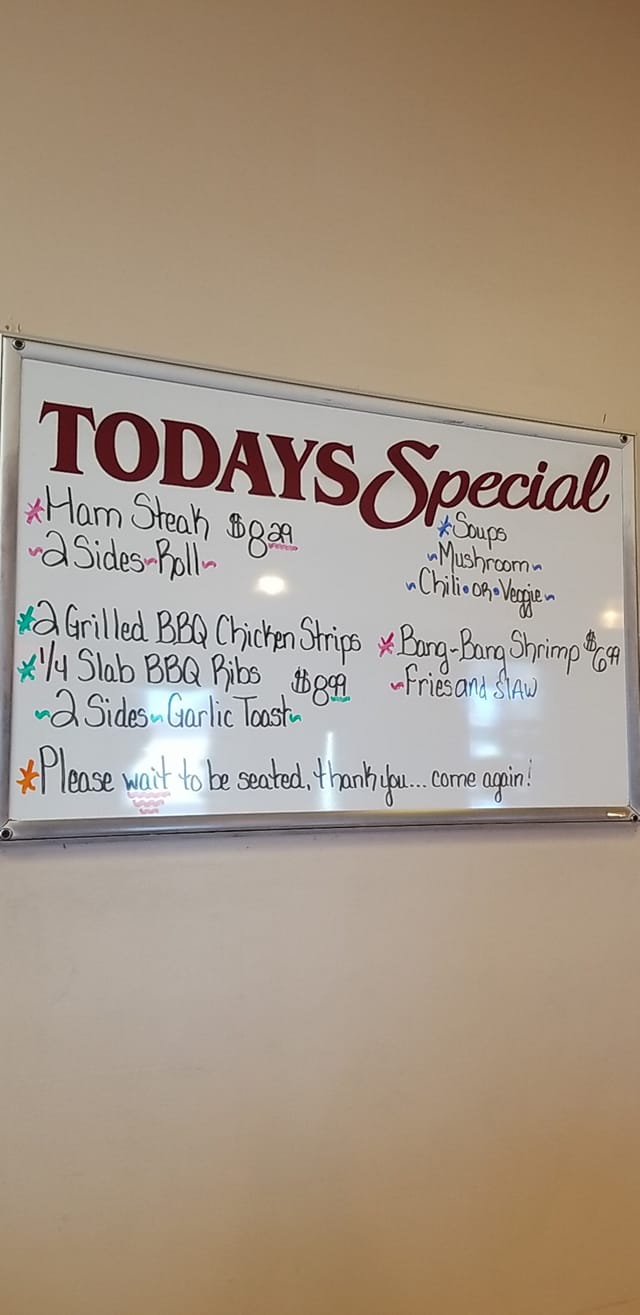 TODAYS Special
*Ham Steak $8.29
~2 Sides~Roll~
*2 Grilled BBQ Chicken Strips
*1/4 Slab BBQ Ribs $8.99
~2 Sides~Garlic Toast~
*Soups
~Mushroom~
~Chili•OR•Veggie~
*Bang-Bang Shrimp $6.99
~Fries and SlAW
*Please wait to be seated, thank you... come again!